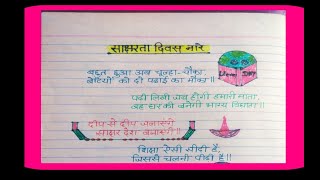 साक्षरता दिवस नारे
बहुत हुआ अब चूल्हा-चौका,
बेटियों को दो पढ़ाई का मौका॥
पढ़ी लिखी जब होगी हमारी माता,
घर की बनेगी भाग्य विधाता॥
दीप से दीप जलाएंगे
साक्षर देश बनाएंगे॥
शिक्षा ऐसी सीढ़ी है,
जिससे चलती पीढ़ी है॥